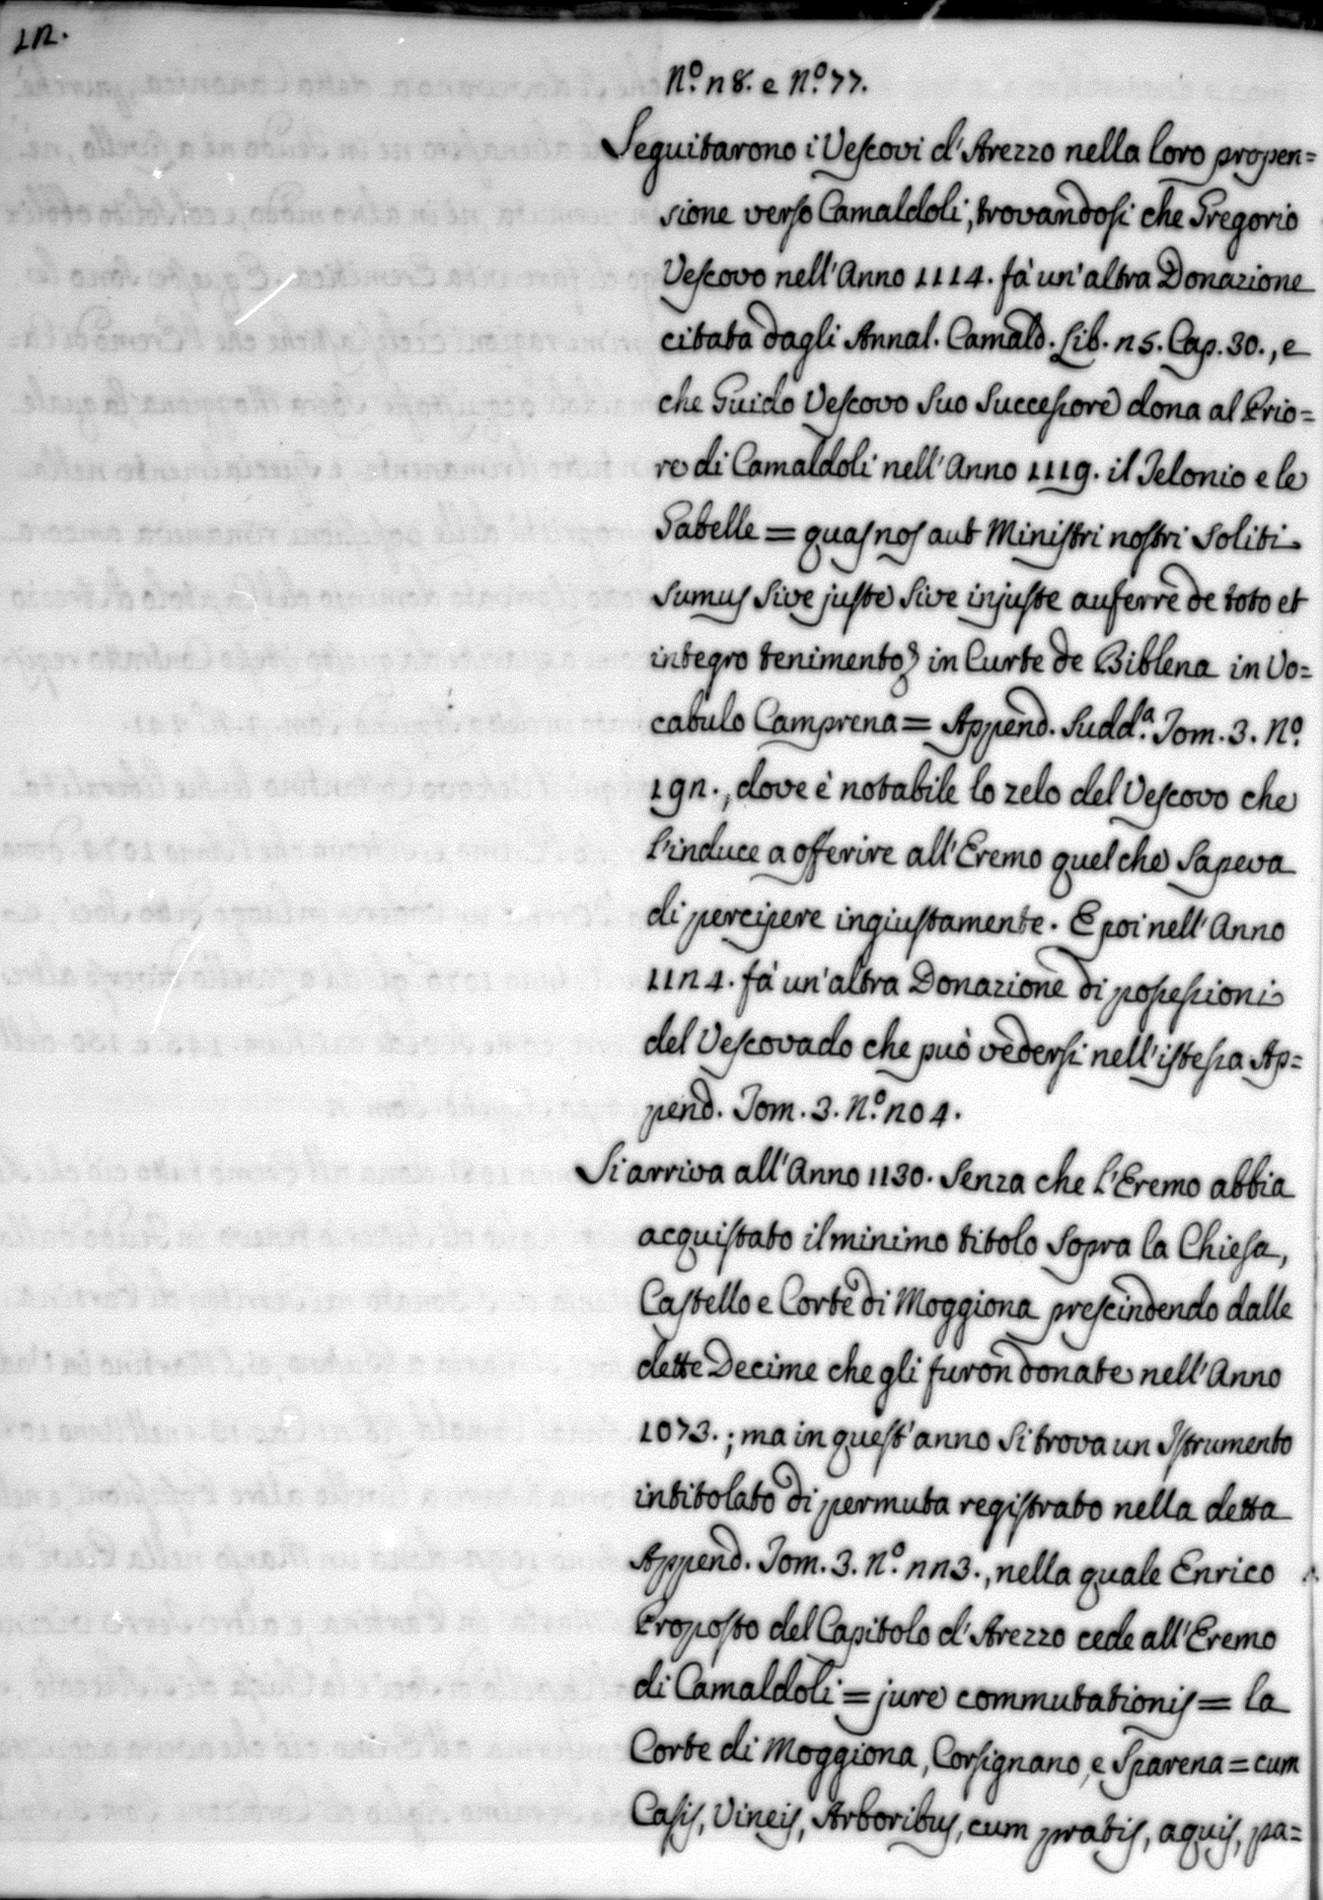 12.
N.º 28. e N.º 77.
Seguitarono i Vescovi d'Arezzo nella loro propen=
sione verso Camaldoli, trovandosi che Gregorio
Vescovo nell'Anno 1114. fà un'altra Donazione
citata dagli Annal. Camald. Lib. 25. Cap. 30., e
che Guido Vescovo suo successore dona al Prio=
re di Camaldoli nell'Anno 1119. il Telonio e le
Gabelle = quas nos aut Ministri nostri soliti
sumus sive juste sive injuste auferre de toto et
integro tenimento in Curte de Biblena in Vo=
cabulo Camprena = Append. sudd.ª Tom. 3. N.º
192., dove è notabile lo zelo del Vescovo che
l'induce a offerire all'Eremo quel che sapeva
di percipere ingiustamente. E poi nell'Anno
1124. fà un'altra Donazione di possessioni
del Vescovado che può vedersi nell'istessa Ap=
pend. Tom. 3. N.º 204.
Si arriva all'Anno 1130. senza che l'Eremo abbia
acquistato il minimo titolo sopra la Chiesa,
Castello e Corte di Moggiona prescindendo dalle
dette Decime che gli furon donate nell'Anno
1073.; ma in quest'anno si trova un Istrumento
intitolato di permuta registrato nella detta
Append. Tom. 3. N.º 223., nella quale Enrico
Proposto del Capitolo d'Arezzo cede all'Eremo
di Camaldoli = jure commutationis = la
Corte di Moggiona, Corsignano, e Sparena = cum
Casis, Vineis, Arboribus, cum pratis, aquis, pa=